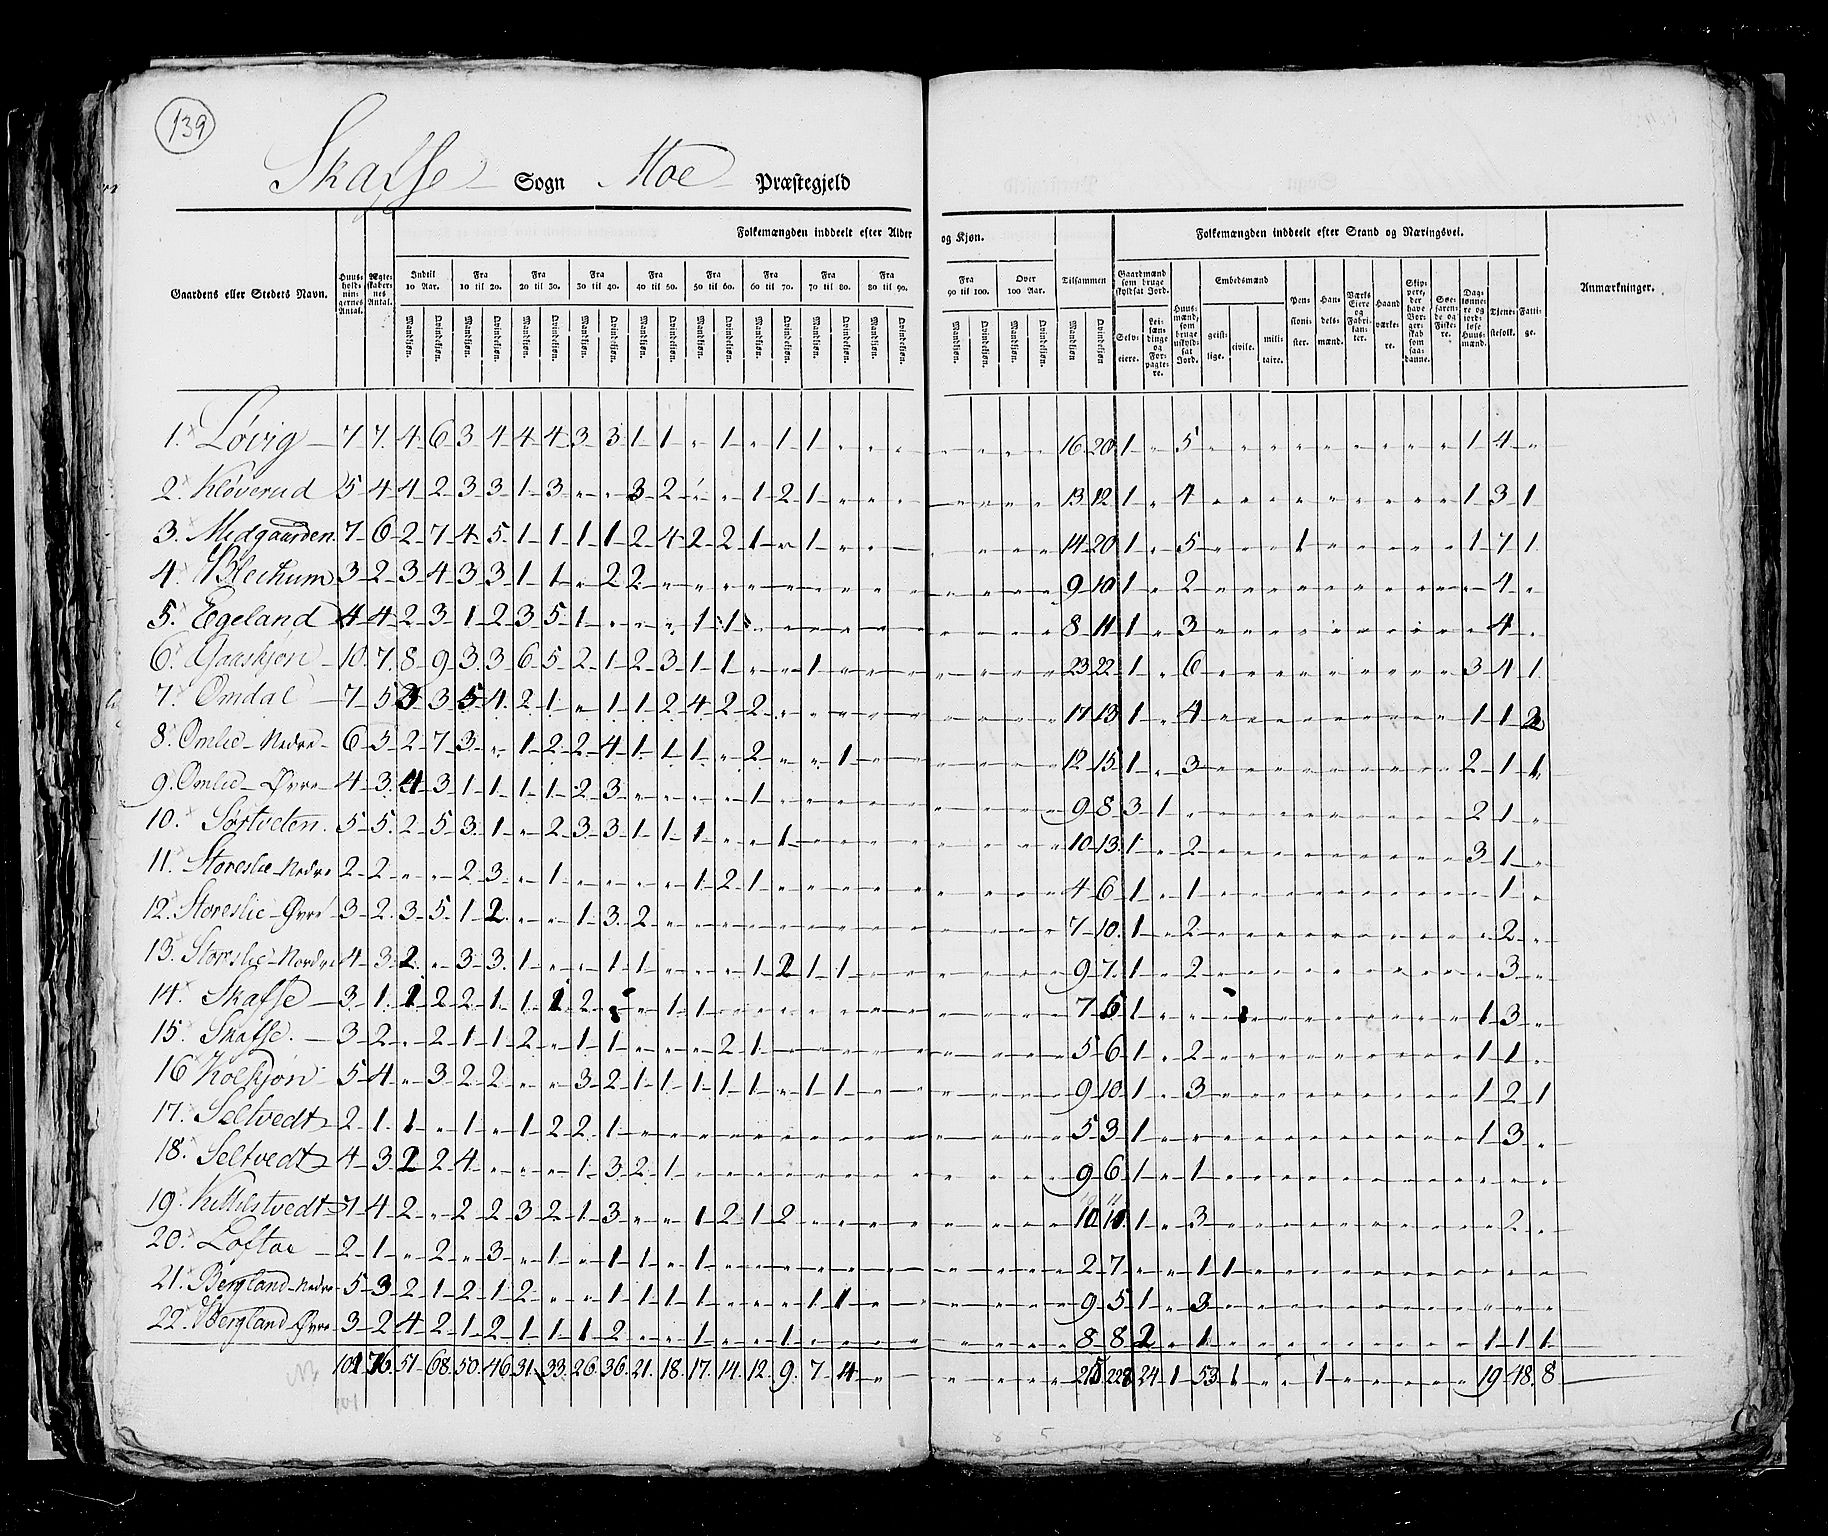 139
Skafse Sogn Moe Præstegjeld
Gaardens eller Stedets Navn.
Huusholdningernes Antal.
Ægteskabernes Antal.
Folkemængden inddeelt efter Alder og Kjøn.
Indtil 10 Aar. Fra 10 til 20. Fra 20 til 30. Fra 30 til 40. Fra 40 til 50. Fra 50 til 60. Fra 60 til 70. Fra 70 til 80. Fra 80 til 90. Fra 90 til 100. Over 100 Aar. Tilsammen
Mandkjøn. Qvindekjøn.
Folkemængden inddeelt efter Stand og Næringsvei.
Gaardmænd som bruge skyldsat Jord.
Selveiere. Leilændinge og Forpagtere.
Huusmænd, som bruge uskyldsat Jord.
Embedsmænd
geistlige. civile. militaire.
Pensionister.
Handelsmænd.
Værks Eiere og Fabrikanter.
Haandværkere.
Skippere, der have Borgerskab som saadanne.
Søefarende og Fiskere.
Daglønnere og jordløse Huusmænd.
Tjenestefolk.
Fattige.
Anmærkninger.
1. Løvig 7 7 4 6 3 4 4 4 3 3 1 1 " 1 " 1 1 " " " " " " " 16 20 1 " 5 " " " " " " " " " 1 4 "
2. Kløverud 5 4 4 2 3 3 1 3 " " 3 2 " " 1 2 1 " " " " " " " 13 12 1 " 4 " " " " " " " " " 1 3 1
3. Midgaarden 7 6 2 7 4 5 1 1 1 1 2 4 2 2 1 " 1 " " " " " " " 14 20 1 " 5 " " " 1 " " " " " 1 7 1
4. Blechum 3 2 3 4 3 3 1 1 " 2 2 " " " " " " " " " " " " " 9 10 1 " 2 " " " " " " " " " " 4 "
5. Egeland 4 4 2 3 1 2 3 5 1 " " " 1 1 " " " " " " " " " " 8 11 1 " 3 " " " " " " " " " " 4 "
6. Gaaskjøn 10 7 8 9 3 3 6 5 2 1 2 3 1 1 " " 1 " " " " " " " 23 22 1 " 6 " " " " " " " " " 3 4 1
7. Omdal 7 5 3 3 5 1 2 1 " 1 1 2 4 2 2 " " " " " " " " " 17 13 1 " 4 " " " " " " " " " 1 1 2
8. Omlie Nedre 6 5 2 7 3 " 1 2 2 4 1 1 1 " 2 " " 1 " " " " " " 12 15 1 " 3 " " " " " " " " " 2 1 1
9. Omlie Øvre 4 3 4 3 1 1 1 1 2 3 " " " " 1 " " " " " " " " " 9 8 3 1 " " " " " " " " " " 2 1 "
10. Sørtveten 5 5 2 5 3 1 " 2 3 3 1 1 1 " " 1 " " " " " " " " 10 13 1 " 2 " " " " " " " " " 3 1 "
11. Storeslie Nedre 2 2 " " 2 3 " 1 " " " " 1 2 1 " " " " " " " " " 4 6 1 " 1 " " " " " " " " " " 1 "
12. Storeslie Øvre 3 2 3 5 1 2 " " 1 3 2 " " " " " " " " " " " " " 7 10 1 " 2 " " " " " " " " " " 2 "
13. Storslie Nordre 4 3 2 " 3 3 1 " " 1 1 " " " 1 2 1 1 " " " " " " 9 7 1 " 2 " " " " " " " " " " 3 "
14. Skafse 3 1 1 2 2 1 1 1 2 " " 1 1 " " " " " " " " " " " 7 5 1 " " " " " " " " " " 1 3 "
15. Skafse. 3 2 " 2 1 1 2 " 1 1 " " " 2 1 " " " " " " " " " 5 6 1 " 2 " " " " " " " " " 1 1 "
16 Kolskjøn 5 4 " 3 2 2 " " 3 2 1 1 1 1 1 " 1 1 " " " " " " 9 10 1 " 3 " " " " " " " " " 1 2 1
17. Seltvedt 2 1 1 " 1 " 1 2 2 1 " " " " " " " " " " " " " " 5 3 1 " " " " " " " " " " " 1 3 "
18. Seltvedt 4 3 2 2 4 " " " 1 3 2 1 " " " " " " " " " " " " 9 6 1 " 1 " " " " " " " " " " " "
19. Kittilstvedt 7 4 2 " 2 2 3 2 1 3 " " 1 2 1 2 " " " " " " " " 10 11 1 " 3 " " " " " " " " " " 2 "
20. Loftae 2 1 " 2 " 3 " 1 " 1 1 " 1 " " " " " " " " " " " 2 7 " " 1 1 " " " " " " " " " " "
21. Bergland Nedre 5 3 2 1 2 1 2 " " 1 1 1 1 " " " 1 1 " " " " " " 9 5 1 " 3 " " " " " " " " " " " "
22. Bergland Øvre 3 2 4 2 1 2 1 1 1 2 " " 1 " " 1 " " " " " " " " 8 8 2 " 1 " " " " " " " " " 1 1 1
101 76 51 68 50 46 31 33 26 36 21 18 17 14 12 9 7 4 " " " " " " 215 228 24 1 53 1 " " 1 " " " " " 19 48 8
101